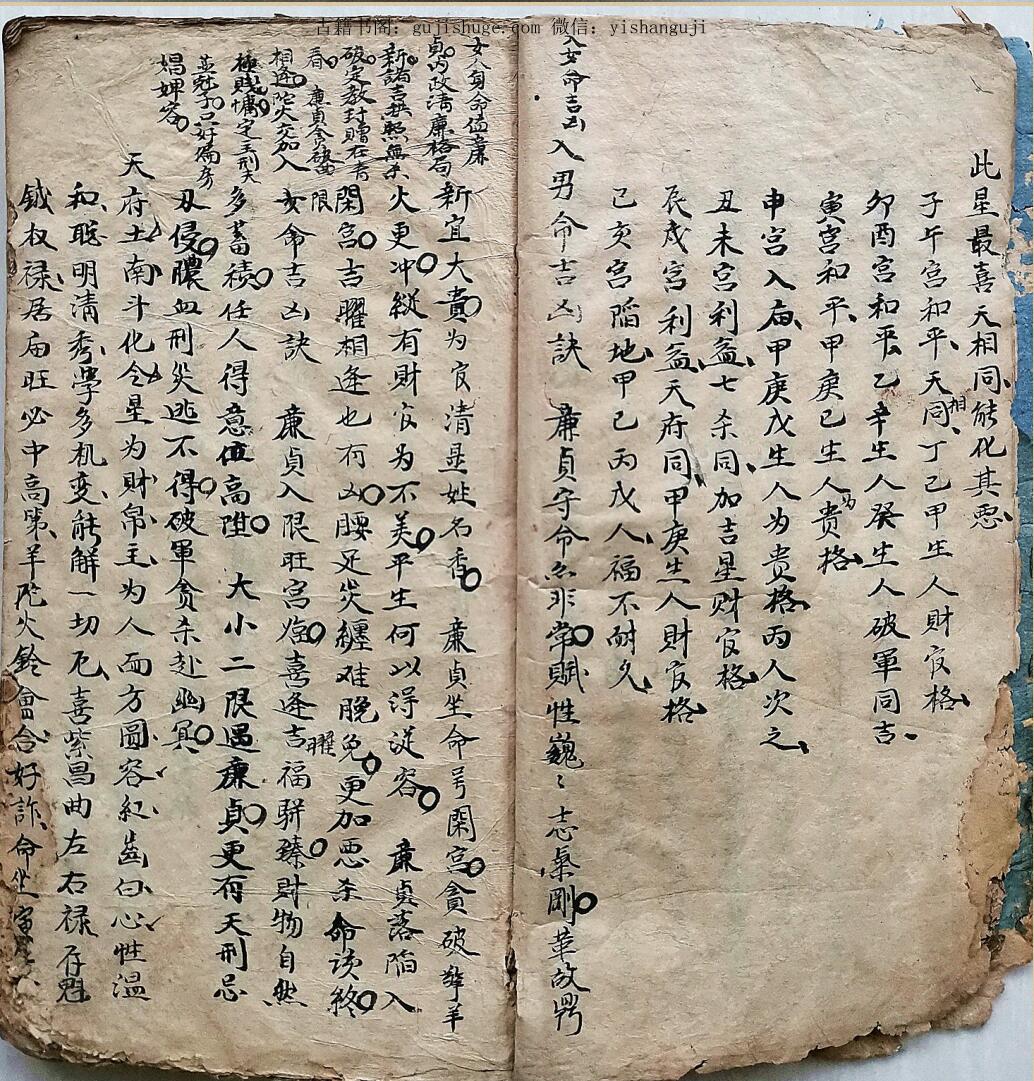 古籍书阁：gujishuge.com 微信：yishanguji
此星最喜天相同能化其恶
子午宫和平天同相丁己甲生人財官格
卯酉宫和平乙辛生人癸生人破軍同吉
寅宫和平甲庚已生人为贵格
申宫入庙甲庚戊生人为贵格丙人次之
丑未宫利益七杀同加吉星财官格
辰戌宫利益天府同甲庚生人財官格
己亥宫陷地甲己丙戊人福不耐久
入男命吉凶訣 廉貞守命亦非常賦性巍〻志氣剛革故鼎
入女命吉凶
新宜大貴为官清显姓名香 廉貞坐命号閑宫貪破擎羊
火更冲縱有財官为不美平生何以得從容 廉貞落陷入
閑宫吉曜相逢也有凶腰足災纏难脱免更加恶杀命该終
限
入女命吉凶訣 廉貞入限旺宫臨喜逢吉曜福駢臻財物自然
多蓄積任人得意位高陞 大小二限遇廉貞更有天刑忌
刃侵膿血刑災逃不得破軍貪杀赴幽冥
天府土南斗化令星为財帛主为人面方圓容紅齒白心性温
和聪明清秀學多机变能解一切厄喜紫昌曲左右禄存魁
鉞权禄居庙旺必中高第羊陀火鈴會合好詐命坐
女人身命值廉
貞内政清廉格局
新諸吉拱照無杀
破定教封贈在青
春 廉貞貪破曲
相逢陀火交加
極賤慵定主刑夫
並尅子只好偏房
娼婢容